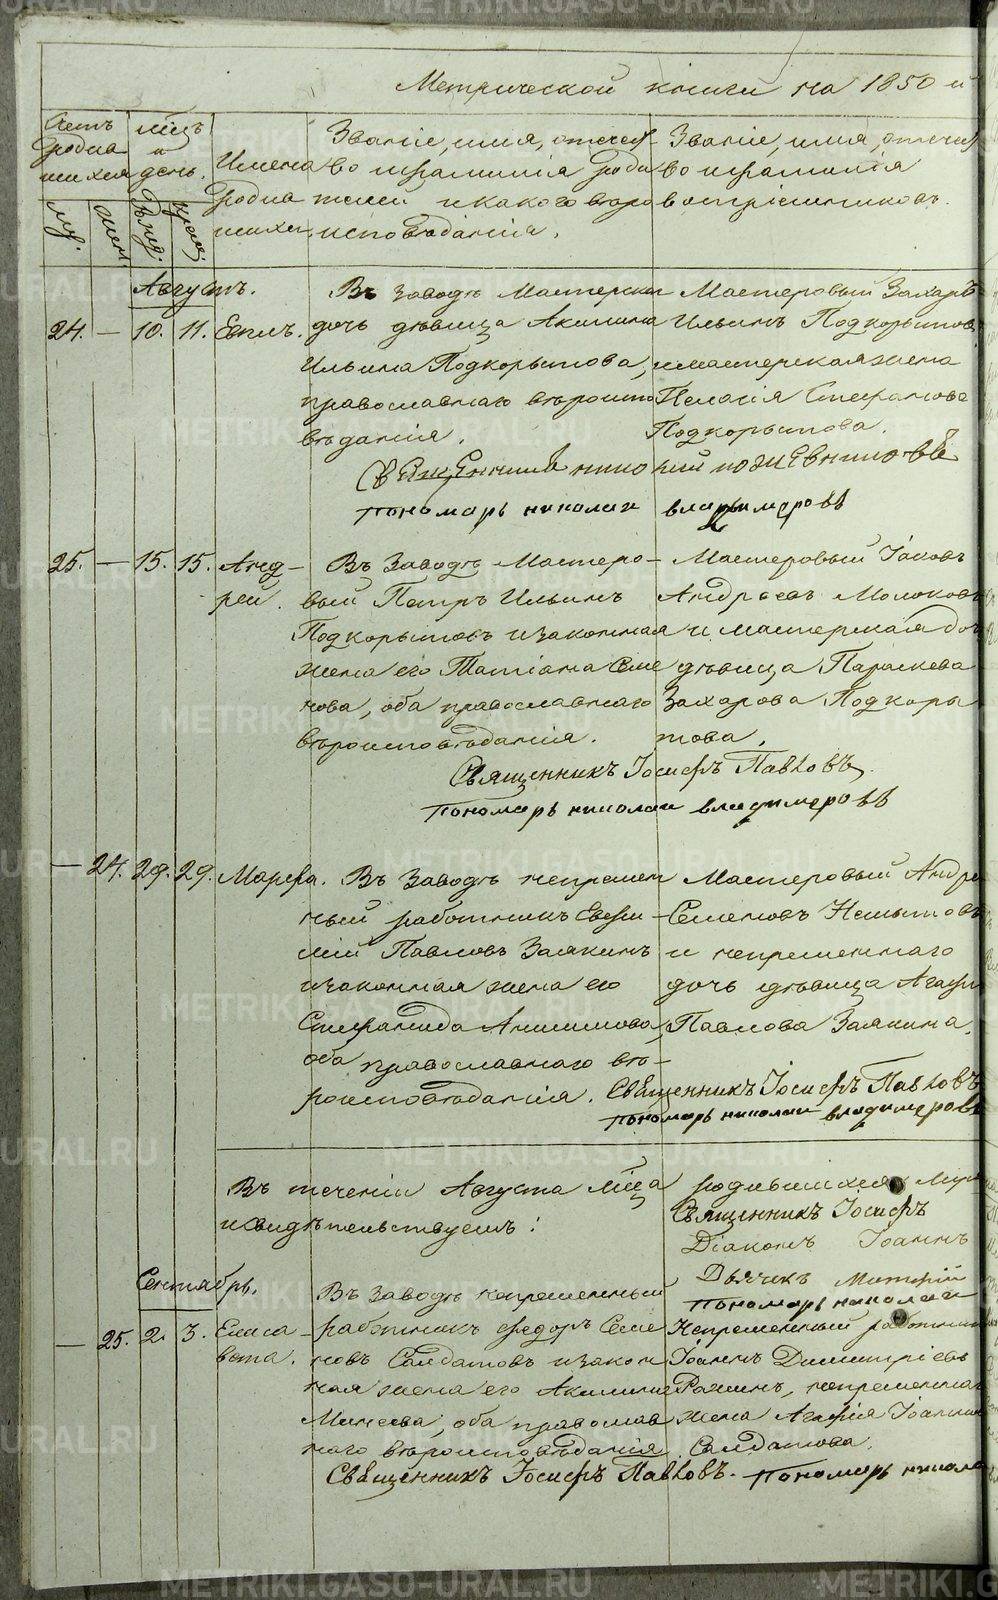 Метрической книги на 1850й
Счетъ родив шихся
мѣсяцъ и день.
Имена родив шихся.
Званіе, имя, отечест во и фамилія роди телей и какого вѣро исповѣданія.
Званіе, имя, отечест во и фамилія воспріемниковъ.
муж. | жен. | рожд. | крещ.
Августъ.
24. — 10. 11. Евплъ.
Въ Заводѣ Мастерская
дочь дѣвица Акилина
Ильина Подкорытова,
православнаго вѣроиспо
вѣданія.
Мастеровый Захаръ
Ильинъ Подкорытов
и мастерская жена
Пелагія Стефанова
Подкорытова.
Священникъ Николай
Пономарь Николай Владимеровъ
25. — 15. 15. Анд-
рей.
Въ Заводѣ Мастеро-
вый Петръ Ильинъ
Подкорытовъ и законная
жена его Татіана Семе
нова, оба православнаго
вѣроисповѣданія.
Мастеровый Іаковъ
Андреевъ Молоковъ
и мастерская доч
дѣвица Параскева
Захарова Подкоры
това.
Священникъ Іосифъ Павловъ.
Пономарь Николай Владимеровъ
— 24. 29. 29. Марѳа.
Въ Заводѣ непремен
ный работникъ Евге
ній Павловъ Заякинъ
и законная жена его
Стефанида Анисимова,
оба православнаго вѣ-
роисповѣданія.
Мастеровый Андре
Семеновъ
и непременнаго
дочь дѣвица Агафі
Павлова Заякина.
Священникъ Іосифъ Павловъ
Пономарь Николай Владимеровъ
Въ теченіи Августа м҃ца родившихся
и свидѣтельствуемъ:
Священникъ Іосифъ
Діаконъ Іоаннъ
Дьячекъ
Пономарь Николай
Сентябрь.
— 25. 2. 3. Елиса-
вета.
Въ Заводѣ непременный
работникъ Ѳедоръ Семе
новъ Солдатовъ и закон
ная жена его Акилина
Минеева, оба православ
наго вѣроисповѣданія.
Непременный работник
Іоаннъ Димитріевъ
непременная
жена Агафія Іоанни
Солдатова.
Священникъ Іосифъ Павловъ. Пономарь Никола
METRIKI.GASO-URAL.RU